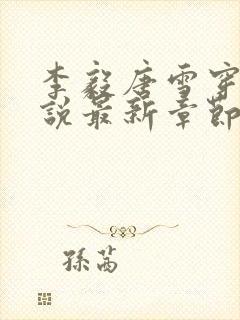 李毅唐雪穿
說最新章節
孫茜